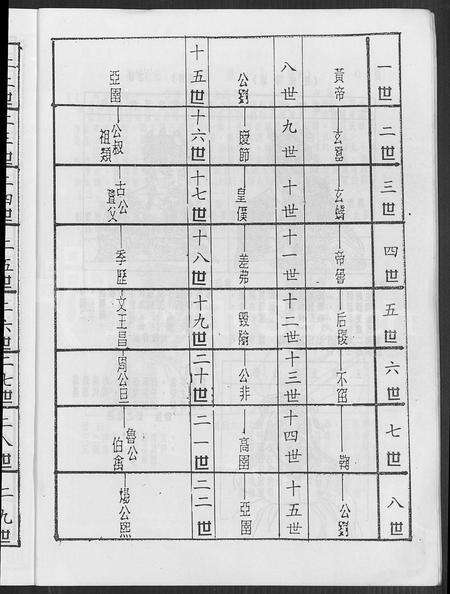 一世
二世
三世
四世
五世
六世
七世
八世
黃帝
玄囂
玄蟜
帝嚳
后稷
不窋
鞠
公劉
八世
九世
十世
十一世
十二世
十三世
十四世
十五世
公劉
慶節
皇僕
差弗
毀隃
公非
高圉
亞圉
十五世
十六世
十七世
十八世
十九世
二十世
二一世
二二世
亞圉
公叔
祖類
古公
亶父
季歷
文王昌
周公旦
魯公
伯禽
煬公熙
二二世
二三世
二四世
二五世
二六世
二七世
二八世
二九世